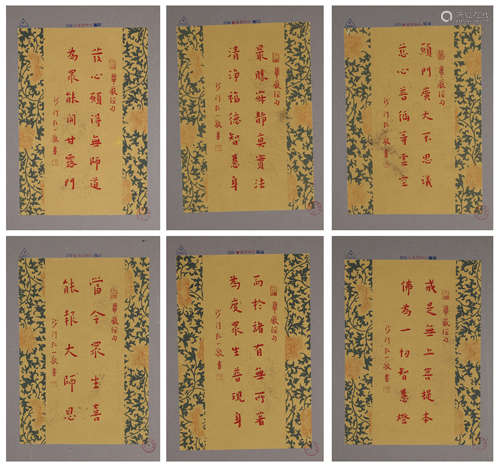 華嚴經句
發心願得無師道
為眾能開甘露門
沙門弘一敬書
華嚴經句
最勝寂靜真實法
清淨福德智慧身
沙門弘一敬書
華嚴經句
願門廣大不思議
慈心普徧等虛空
沙門弘一敬書
華嚴經句
當令眾生喜
能報大師恩
沙門弘一敬書
華嚴經句
而於諸有無所著
為度眾生普現身
沙門弘一敬書
華嚴經句
戒是無上菩提本
佛為一切智慧燈
沙門弘一敬書